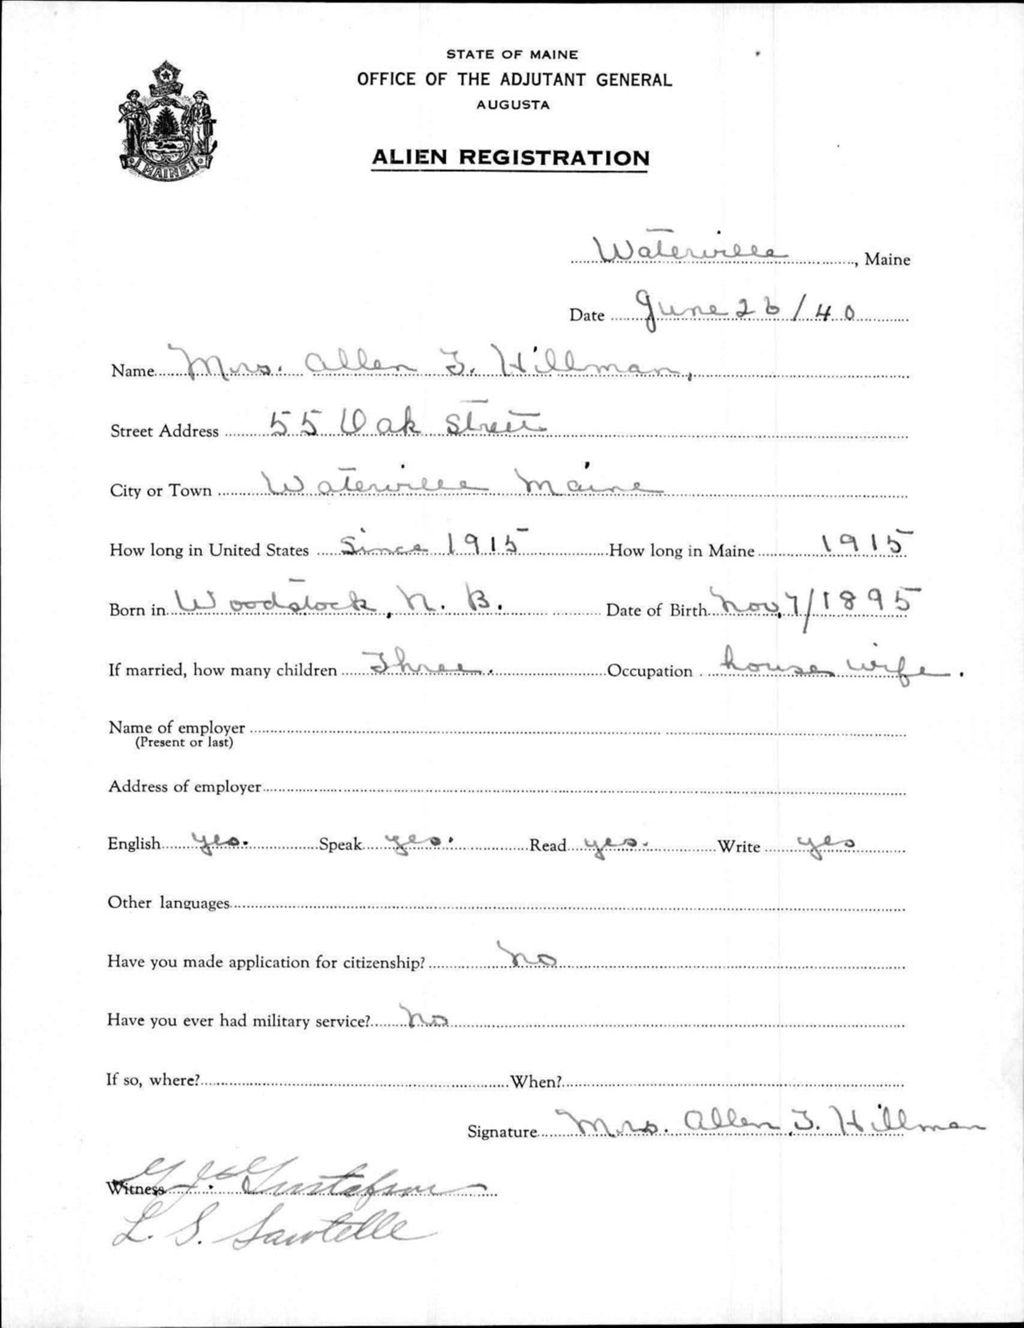 STATE OF MAINE
OFFICE OF THE ADJUTANT GENERAL
AUGUSTA
ALIEN REGISTRATION
MAINE
Waterville, Maine
Date June 26/40
Name Mrs. Allen T. Hillman,
Street Address 55 Oak Street
City or Town Waterville Maine
How long in United States Since 1915 How long in Maine 1915
Born in Woodstock, N. B. Date of Birth Nov, 7/1895
If married, how many children Three. Occupation house wife.
Name of employer
(Present or last)
Address of employer
English yes. Speak yes. Read yes. Write yes
Other languages
Have you made application for citizenship? No
Have you ever had military service? No
If so, where? When?
Signature Mrs. Allen T. Hillman
Witness Gustafson
L. S. Sawtelle